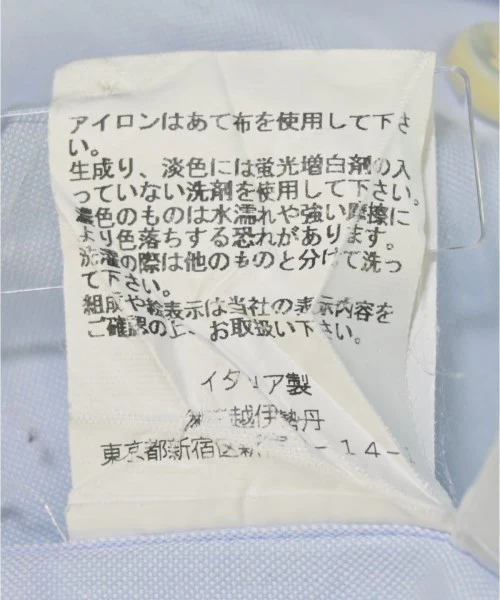 アイロンはあて布を使用して下さ
い。
生成り、淡色には蛍光増白剤の入
っていない洗剤を使用して下さい。
濃色のものは水濡れや強い摩擦に
より色落ちする恐れがあります。
洗濯の際は他のものと分けて洗っ
て下さい。
組成や絵表示は当社の表示内容を
ご確認の上、お取扱い下さい。
イタリア製
越伊勢丹
東京都新宿区新 -14-